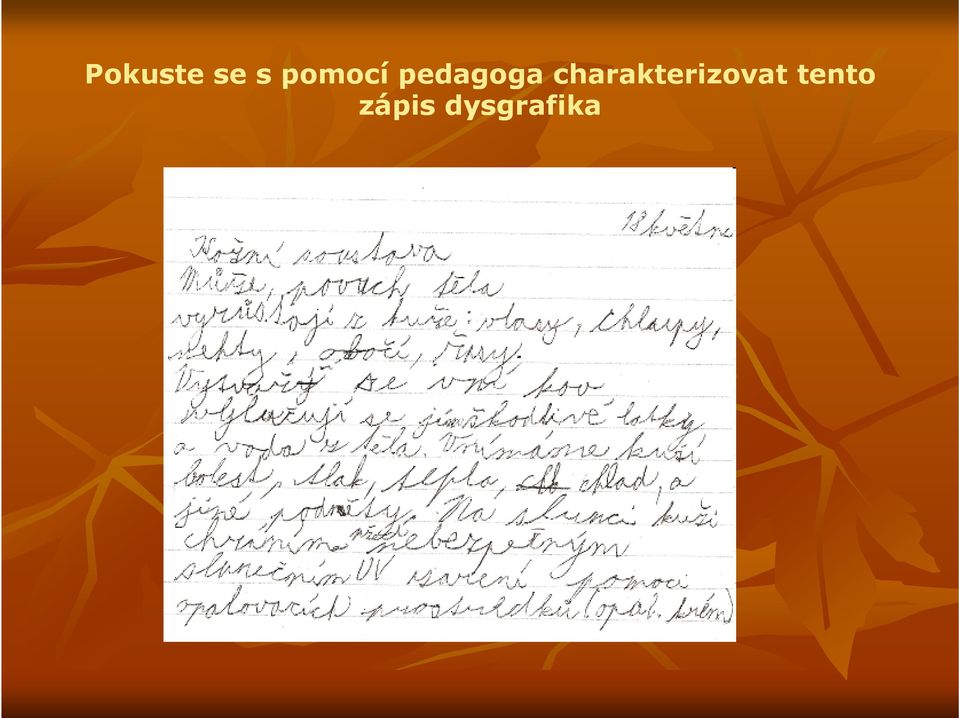 Pokuste se s pomocí pedagoga charakterizovat tento
zápis dysgrafika
18 květne
Kožní soustava
Můrse, povrch těla
vyrůstají z kuže: vlasy, chlaupy,
nehty, obočí, řasy.
Vytváří se v ní kov
vylučují se jím škodlivé latky
a voda z těla. Vnímáme kuží
bolest, tlak, tepla, chlad, a
jíné podněty. Na slunci kuži
chráním před nebezpečným
slunečním UV zaření pomoci
opalovacích prostředků (opal. krém)